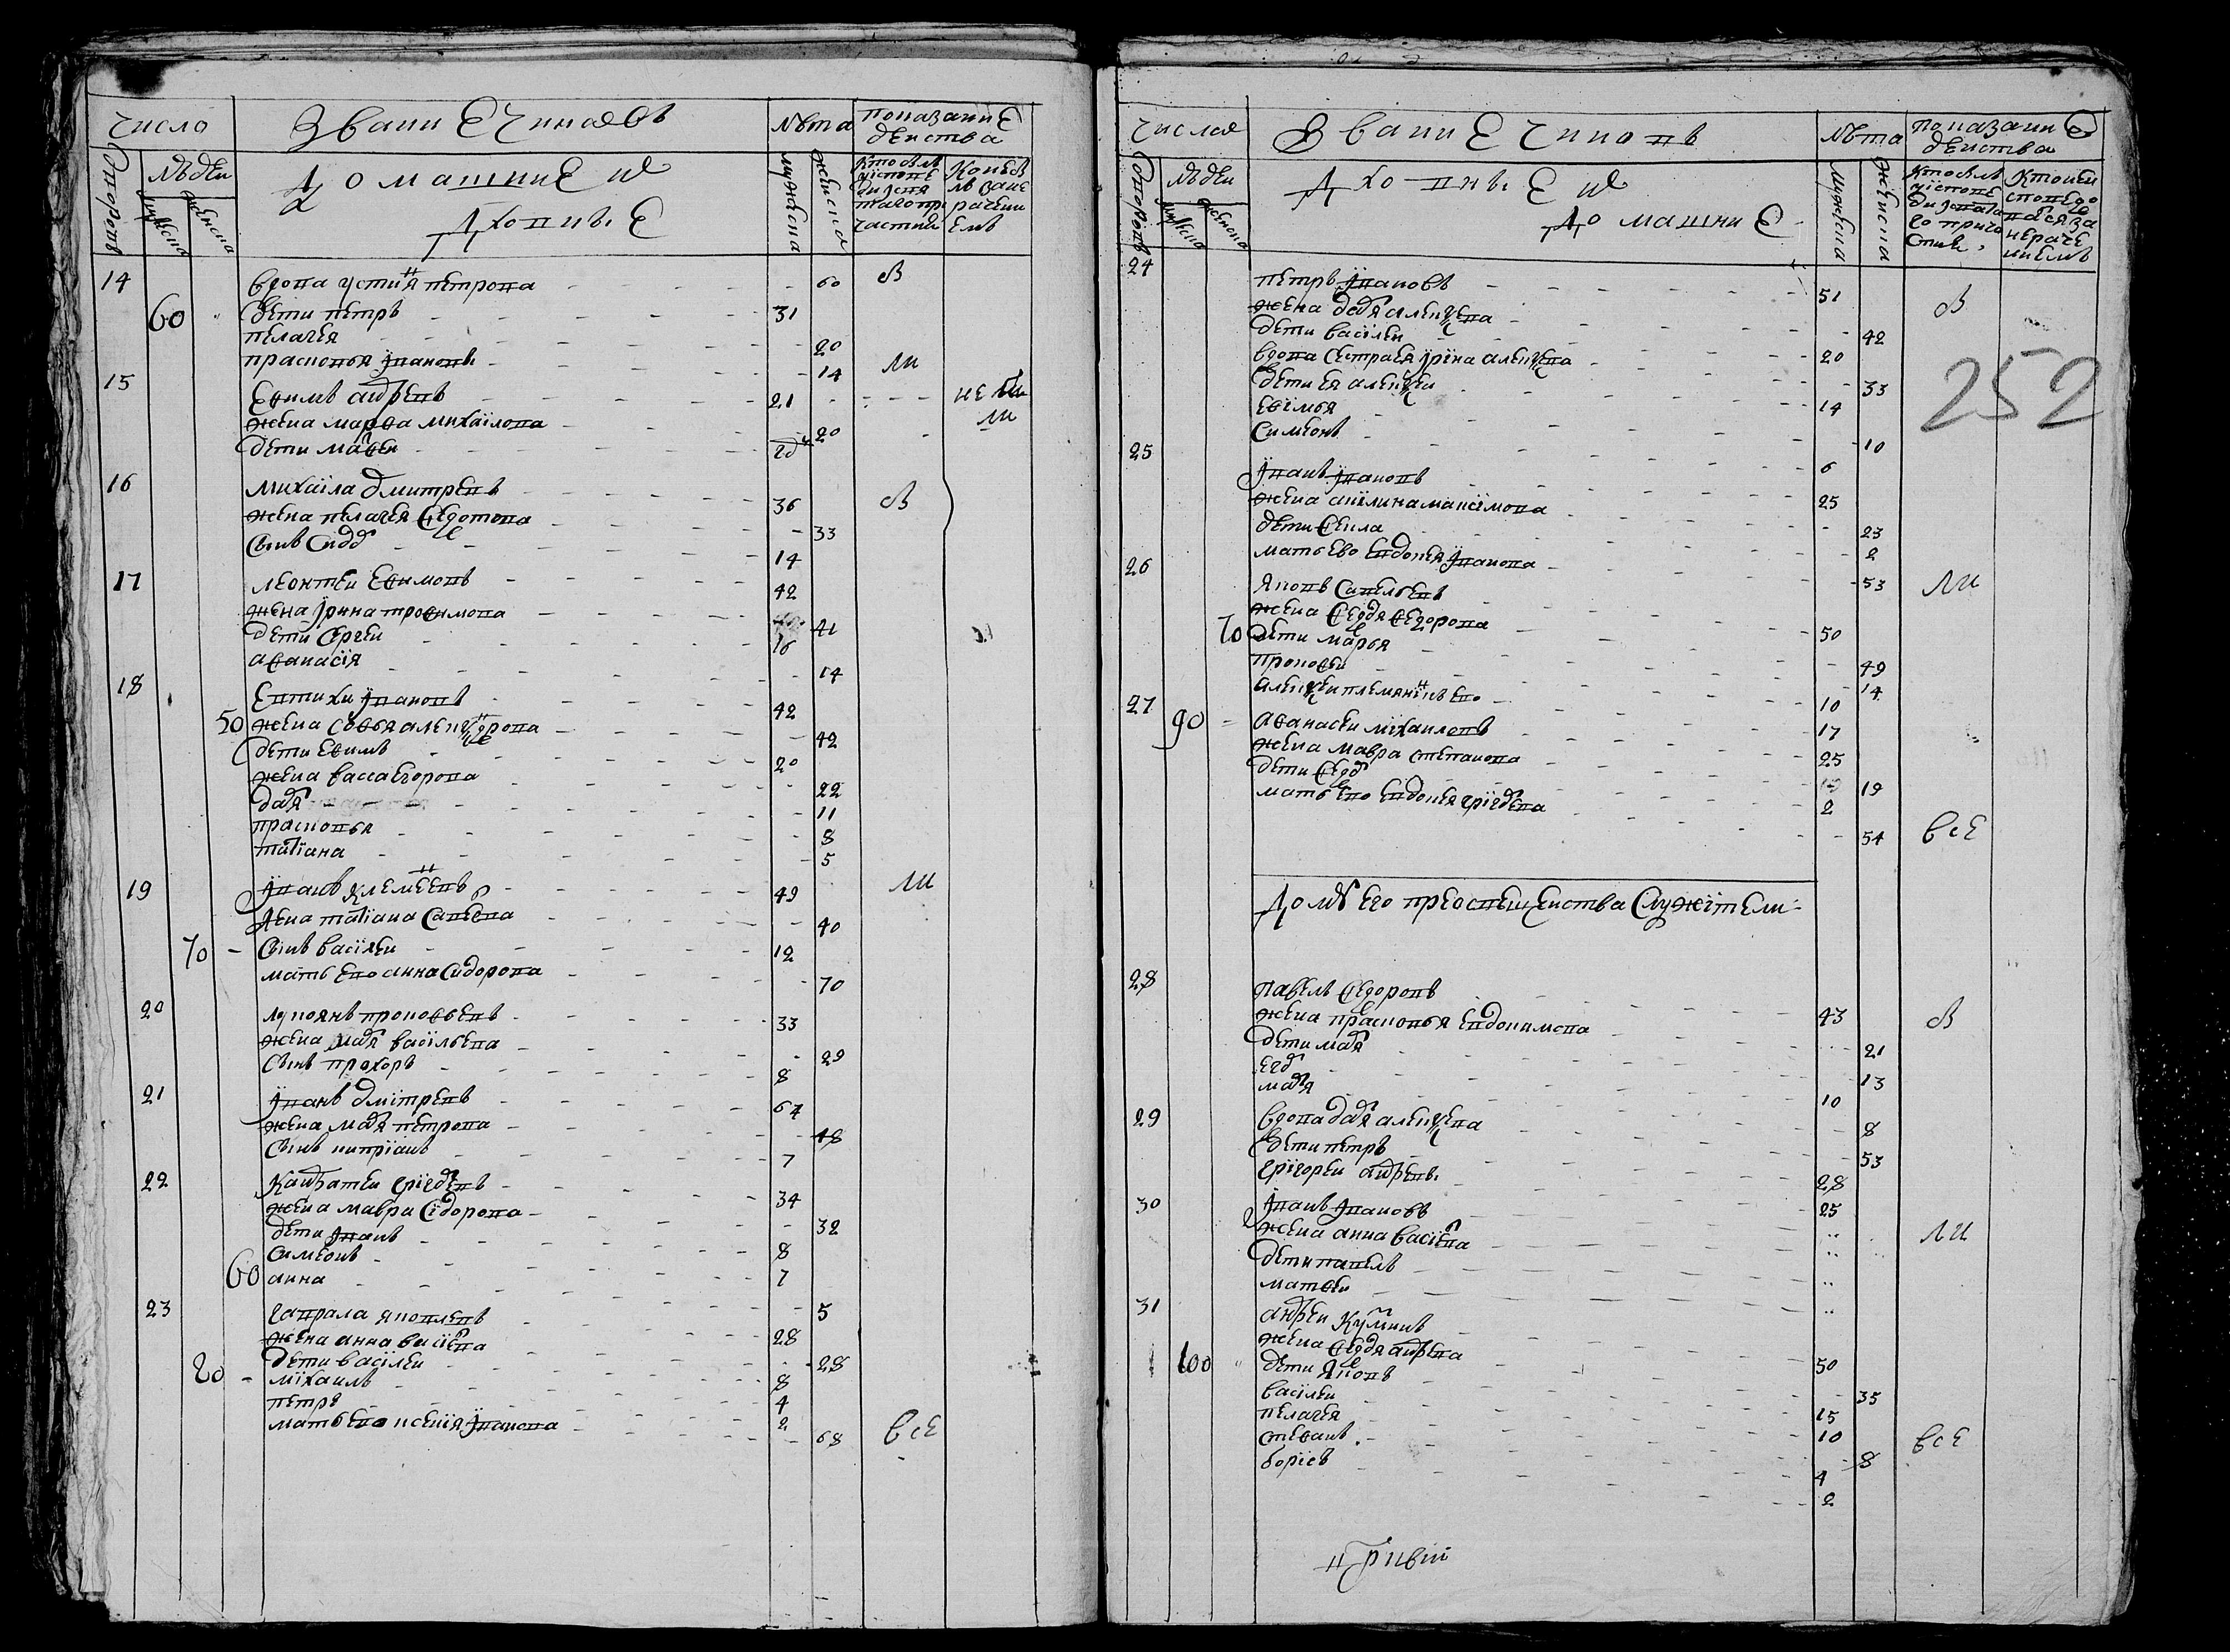 число Звание чиновъ лѣта показание действа
дворовъ людеи домашние и ихъ духовные мужеска женска
мужеска женска
14 вдова устиня петрова 60 В
60 дети петръ 31
пелагея 20
прасковья иванова 14 ЛИ
15 ефимъ андреевъ 21 не бы
жена марфа михаилова 20 ли
дети матфеи
16 михаила дмитревъ 36 В
жена пелагея федотова 33
сынъ сидор 14
17 леонтеи ефимовъ 42
жена ирина трофимова 41
дети сергеи 16
афанасия 14
18 евтихи ивановъ 42
50 жена софья александрова 42
дети ефимъ 20
жена васса егорова 22
дарья 11
прасковья 8
татиана 5
19 иванъ клементевъ 49 ЛИ
жена татиана савева 40
70 сынъ василеи 12
мать ево анна сидорова 70
20 лукоянъ прокофьевъ 33
жена марья васильева 29
сынъ прохоръ 8
21 иванъ дмитревъ 64
жена марья петрова 48
сынъ киприанъ 7
22 кандратеи григоревъ 34
жена мавра сидорова 32
дети иванъ 8
симеонъ 7
60 анна 5
23 гаврала яковлевъ 28
жена анна васильева 28
дети василеи 8
80 михаилъ 4
петръ 2
мать ево ксения иванова 68 все
числа Звание чиновъ лѣта показание действа
дворовъ людеи духовные и домашние мужеска женска
мужеска женска
252
24 петръ ивановъ 51 В
жена дарья алексеева 42
дети василеи 20
вдова сестра ея ирина алексеева 33
дети ея алексеи 14
ефимья 10
симеонъ 6
25 иванъ ивановъ 25
жена акилина максимова 23
дети фекла 2
мать ево евдокея иванова 53 ЛИ
26 яковъ савельевъ 50
жена федора егорова 49
70 дети марья 14
прокофеи 10
алексеи племянникъ ево 17
27 90 афанасеи михаиловъ 25
жена мавра степанова 19
дети федор 2
мать ево евдокея григорева 54 все
Дому его преосвещенства служители
28 павелъ федоровъ 43 В
жена прасковья евдокимова 21
дети марья 13
егор 10
марья 8
29 вдова дарья алексеева 53
дети петръ 28
григореи андреевъ 25
30 иванъ ивановъ ЛИ
жена анна васильева
дети павелъ
матфеи
31 андреи кузминъ 50
жена федора андреева 35
100 дети яковъ 15
василеи 10
пелагея 8 все
стефанъ 4
борисъ 2